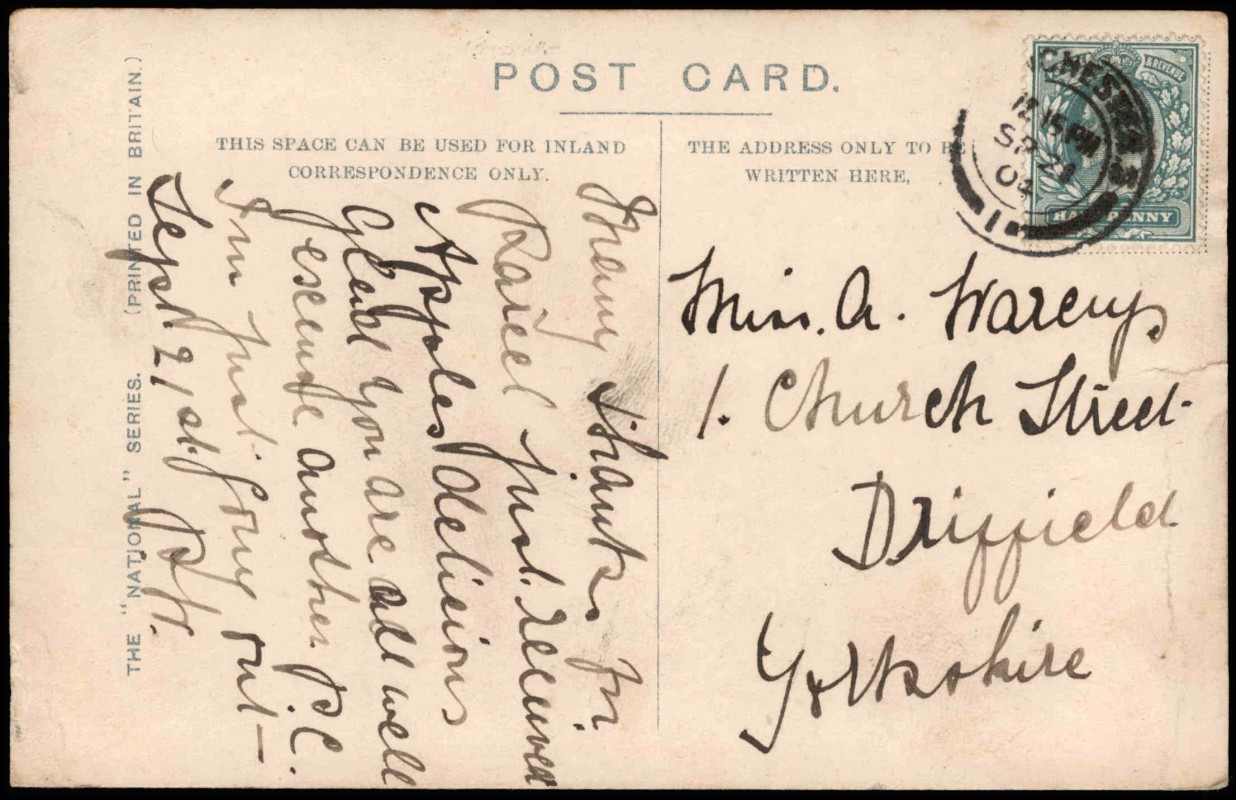 POST CARD.
THIS SPACE CAN BE USED FOR INLAND
CORRESPONDENCE ONLY.
THE ADDRESS ONLY TO BE
WRITTEN HERE,
THE "NATIONAL" SERIES. (PRINTED IN BRITAIN.)
Many thanks for
Parcel just received
Apples delicious
Glad you are all well
excuse another P.C.
Am just going out—
Sept 21st.
Miss. A.
1. Church Street
Driffield
Yorkshire
& REVENUE
HALFPENNY
CHESTER
12.15 PM
SP 21
04
1